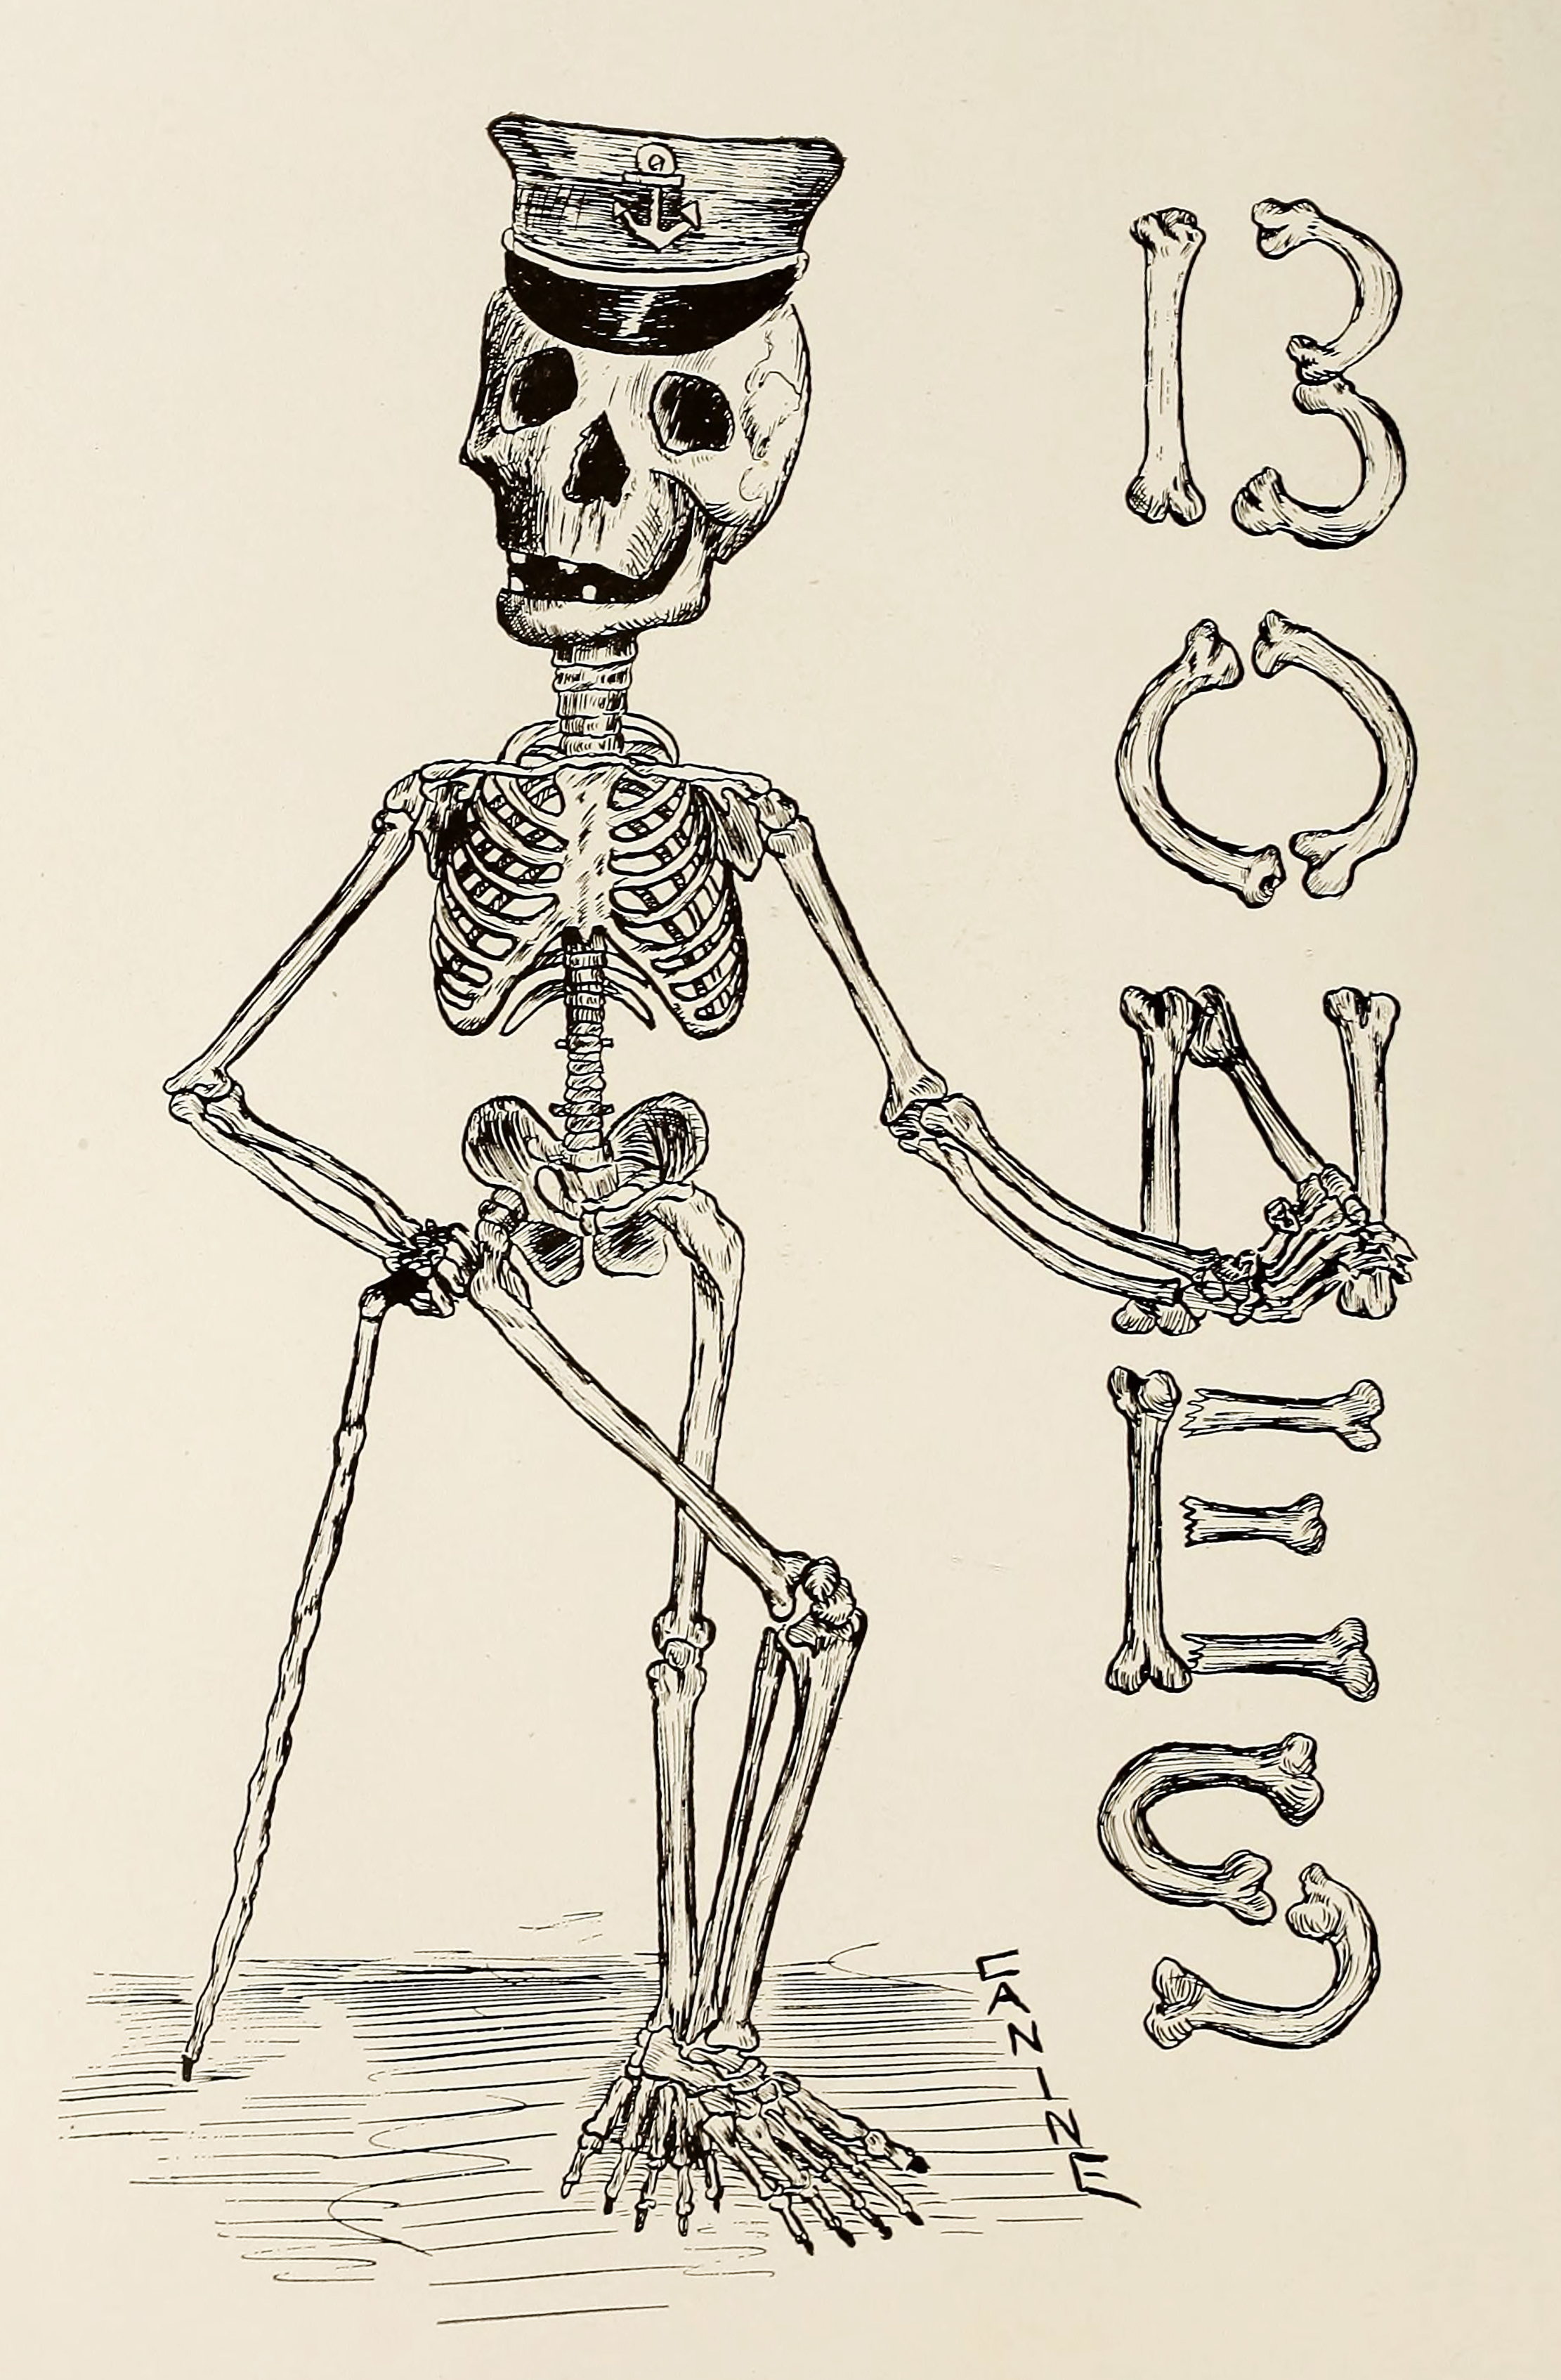 BONES
CANINE